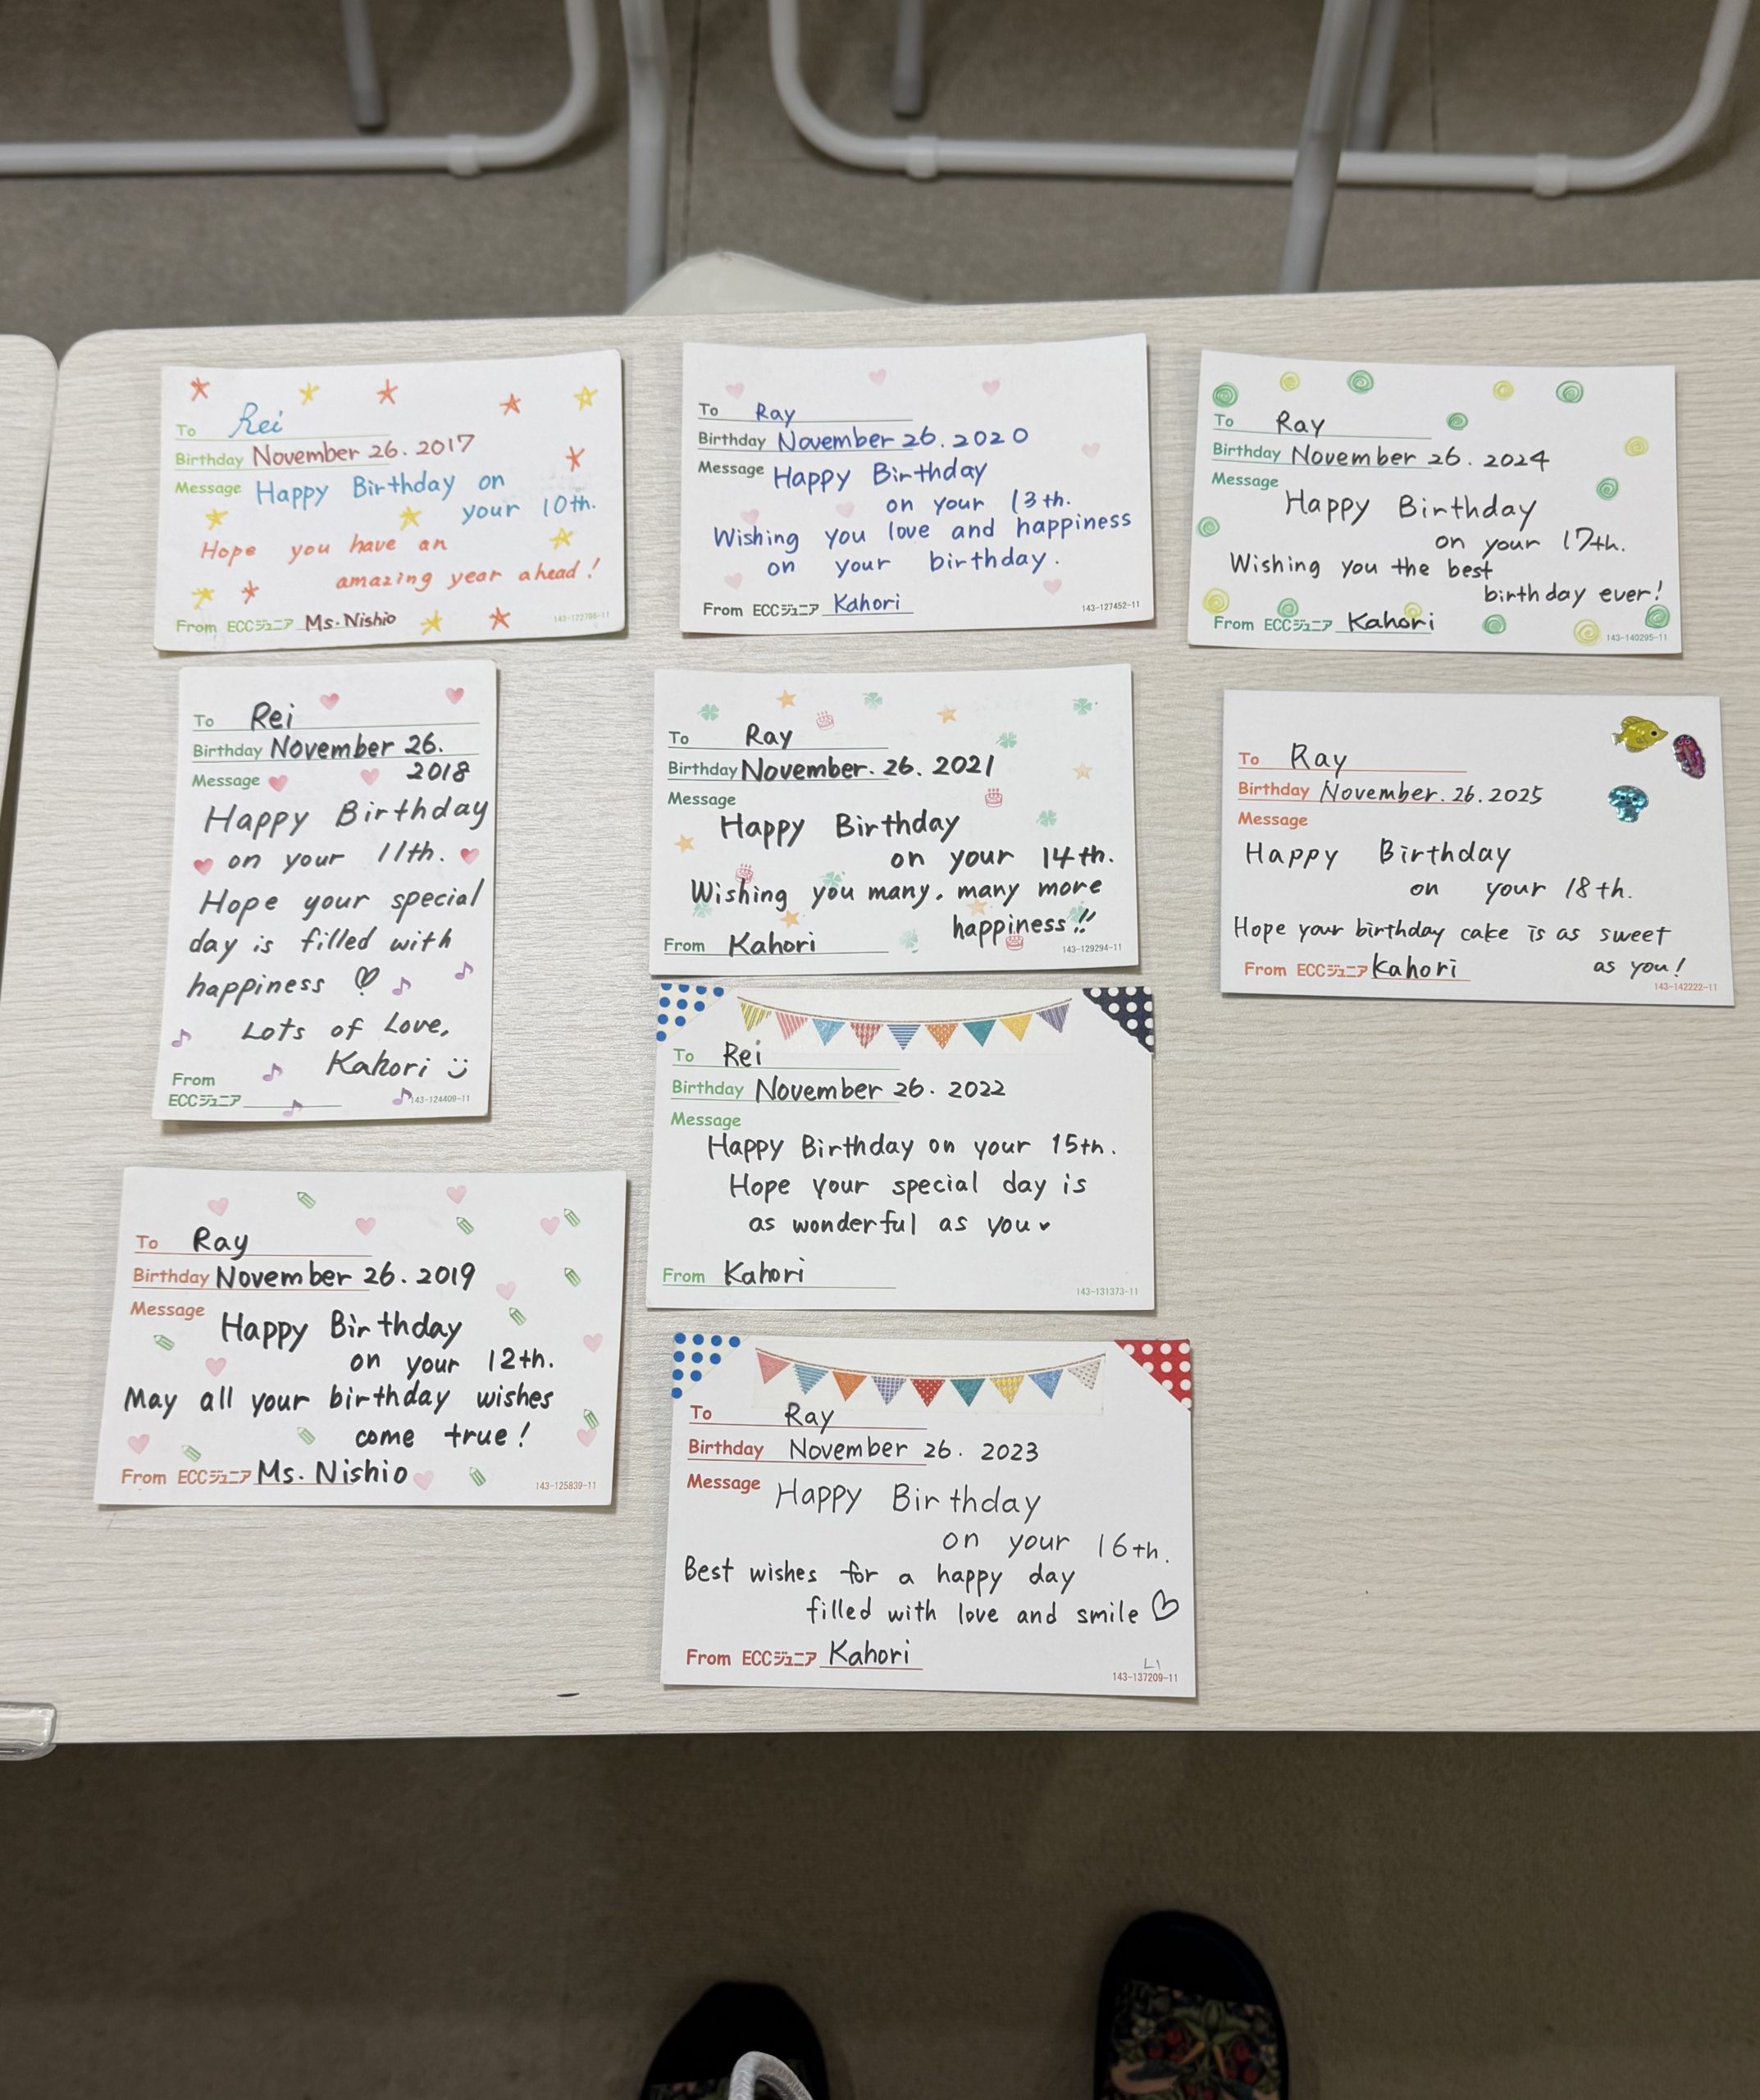 To Rei
Birthday November 26. 2017
Message Happy Birthday on
your 10th.
Hope you have an
amazing year ahead!
From ECCジュニア Ms. Nishio
143-122798-11
To Rei
Birthday November 26.
Message 2018
Happy Birthday
on your 11th.
Hope your special
day is filled with
happiness
Lots of Love,
Kahori
From
ECCジュニア
143-124409-11
To Ray
Birthday November 26. 2019
Message Happy Birthday
on your 12th.
May all your birthday wishes
come true!
From ECCジュニア Ms. Nishio
143-125839-11
To Ray
Birthday November 26. 2020
Message Happy Birthday
on your 13th.
Wishing you love and happiness
on your birthday.
From ECCジュニア Kahori
143-127452-11
To Ray
Birthday November. 26. 2021
Message
Happy Birthday
on your 14th.
Wishing you many, many more
happiness!!
From Kahori
143-129294-11
To Rei
Birthday November 26. 2022
Message
Happy Birthday on your 15th.
Hope your special day is
as wonderful as you
From Kahori
143-131373-11
To Ray
Birthday November 26. 2023
Message Happy Birthday
on your 16th.
Best wishes for a happy day
filled with love and smile
From ECCジュニア Kahori
L1
143-137209-11
To Ray
Birthday November 26. 2024
Message
Happy Birthday
on your 17th.
Wishing you the best
birthday ever!
From ECCジュニア Kahori
143-140295-11
To Ray
Birthday November. 26. 2025
Message
Happy Birthday
on your 18th.
Hope your birthday cake is as sweet
as you!
From ECCジュニア Kahori
143-142222-11